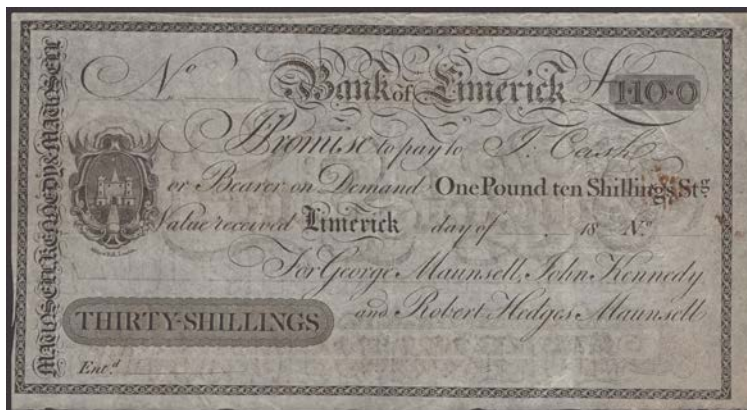 MAUNSELL KENNEDY & MAUNSELL
No Bank of Limerick £1·10·0
I Promise to pay to J. Cash
or Bearer on Demand One Pound ten Shillings Stg
Value received Limerick day of 18 No
For George Maunsell, John Kennedy
and Robert Hedges Maunsell
THIRTY-SHILLINGS
Ent.d